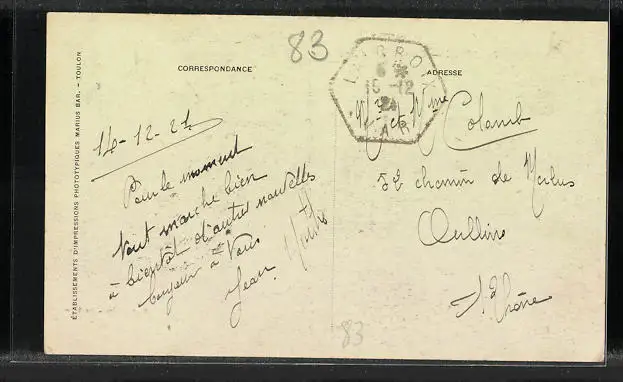 ÉTABLISSEMENTS D'IMPRESSIONS PHOTOTYPIQUES MARIUS BAR. - TOULON
83
CORRESPONDANCE
ADRESSE
14-12-21
Pour le moment
tout marche bien
à bientôt d'autres nouvelles
à Vous
Jean
16-12
21
VAR
et Mme Colomb
52 chemin de
Oullins
Rhône
83